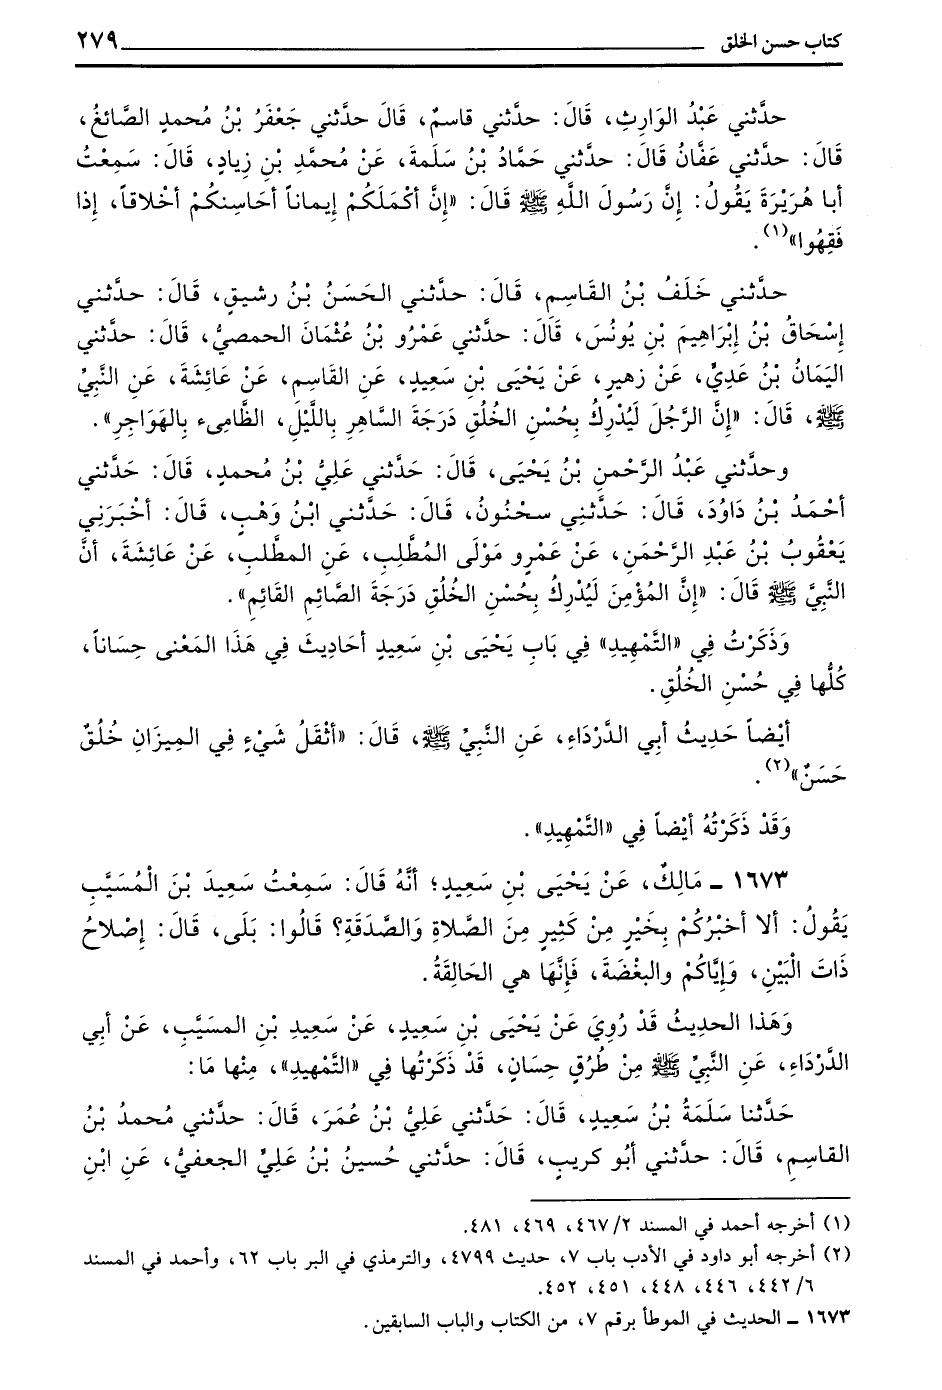 كتاب حسن الخلق ٢٧٩
حدَّثني عَبْدُ الوَارِثِ، قَالَ: حدَّثني قاسمٌ، قَالَ حدَّثني جَعْفَرُ بْنُ مُحمدٍ الصَّائغُ،
قَالَ: حدَّثني عَفَّانُ قَالَ: حدَّثني حَمَّادُ بْنُ سَلَمةَ، عَنْ مُحمَّدِ بْنِ زِيادٍ، قَالَ: سَمِعْتُ
أبا هُرَيْرَةَ يَقُولُ: إِنَّ رَسُولَ اللَّهِ ﷺ قَالَ: «إِنَّ أكْمَلَكُمْ إيماناً أحَاسِنكُمْ أخْلاقاً، إِذا
فَقِهُوا»(١).
حدَّثني خَلَفُ بْنُ القَاسِمِ، قَالَ: حدَّثني الحَسَنُ بْنُ رشيقٍ، قَالَ: حدَّثني
إِسْحَاقُ بْنُ إِبْرَاهِيمَ بْنِ يُونُسَ، قَالَ: حدَّثني عَمْرُو بْنُ عُثْمَانَ الحمصيُّ، قَالَ: حدَّثني
اليَمَانُ بْنُ عَدِيٍّ، عَنْ زهيرٍ، عَنْ يَحْيَى بْنِ سَعِيدٍ، عَنِ القَاسِمِ، عَنْ عَائِشَةَ، عَنِ النَّبِيِّ
ﷺ، قَالَ: «إِنَّ الرَّجُلَ لَيُدْرِكُ بِحُسْنِ الخُلُقِ دَرَجَةَ السَّاهِرِ بِاللَّيْلِ، الظَّامِىء بِالهَوَاجِرِ».
وحدَّثني عَبْدُ الرَّحْمنِ بْنُ يَحْيَى، قَالَ: حَدَّثني عَلِيُّ بْنُ مُحمدٍ، قَالَ: حَدَّثني
أحْمَدُ بْنُ دَاوُدَ، قَالَ: حَدَّثنِي سحْنُونُ، قَالَ: حَدَّثني ابْنُ وَهْبٍ، قَالَ: أخْبَرَنِي
يَعْقُوبُ بْنُ عَبْدِ الرَّحْمَنِ، عَنْ عَمْرٍو مَوْلَى المُطَّلِبِ، عَنِ المطَّلبِ، عَنْ عَائِشَةَ، أنَّ
النَّبِيَّ ﷺ قَالَ: «إِنَّ المُؤْمِنَ لَيُدْرِكُ بِحُسْنِ الخُلُقِ دَرَجَةَ الصَّائِمِ القَائِمِ».
وَذَكَرْتُ فِي «التَّمْهِيدِ» فِي بَابِ يَحْيَى بْنِ سَعِيدٍ أحَادِيثَ فِي هَذَا المَعْنى حِسَاناً،
كُلُّها فِي حُسْنِ الخُلُقِ.
أيْضاً حَدِيثُ أبي الدَّرْدَاءِ، عَنِ النَّبِيِّ ﷺ، قَالَ: «أثْقَلُ شَيْءٍ فِي المِيزَانِ خُلُقٌ
حَسَنٌ»(٢).
وَقَدْ ذَكَرْتُهُ أيْضاً فِي «التَّمْهِيدِ».
١٦٧٣ ـ مَالِكٌ، عَنْ يَحْيَى بْنِ سَعِيدٍ؛ أنَّهُ قَالَ: سَمِعْتُ سَعِيدَ بْنَ الْمُسَيَّبِ
يَقُولُ: ألا أخبْرُكُمْ بِخَيْرٍ مِنْ كَثِيرٍ مِنَ الصَّلاةِ وَالصَّدَقَةِ؟ قَالُوا: بَلَى، قَالَ: إِصْلاحُ
ذَاتَ الْبَيْنِ، وَإِيَّاكُمْ والبغْضَةَ، فَإِنَّهَا هي الحَالِقَةُ.
وَهَذا الحدِيثُ قَدْ رُوِيَ عَنْ يَحْيَى بْنِ سَعِيدٍ، عَنْ سَعِيدِ بْنِ المسَيَّبِ، عَنْ أبي
الدَّرْدَاءِ، عَنِ النَّبِيِّ ﷺ مِنْ طُرُقٍ حِسَانٍ، قَدْ ذَكَرْتُها فِي «التَّمْهِيدِ»، مِنْها مَا:
حَدَّثنا سَلَمَةُ بْنُ سَعِيدٍ، قَالَ: حَدَّثني عَلِيُّ بْنُ عُمَرَ، قَالَ: حدَّثني مُحمدُ بْنُ
القاسِمِ، قَالَ: حدَّثني أبُو كريبٍ، قَالَ: حدَّثني حُسينُ بْنُ عَلِيٍّ الجعفيُّ، عَنِ ابْنِ
(١) أخرجه أحمد في المسند ٤٦٧/٢، ٤٦٩، ٤٨١.
(٢) أخرجه أبو داود في الأدب باب ٧، حديث ٤٧٩٩، والترمذي في البر باب ٦٢، وأحمد في المسند
٤٤٢/٦، ٤٤٦، ٤٤٨، ٤٥١، ٤٥٢.
١٦٧٣ ـ الحديث في الموطأ برقم ٧، من الكتاب والباب السابقين.